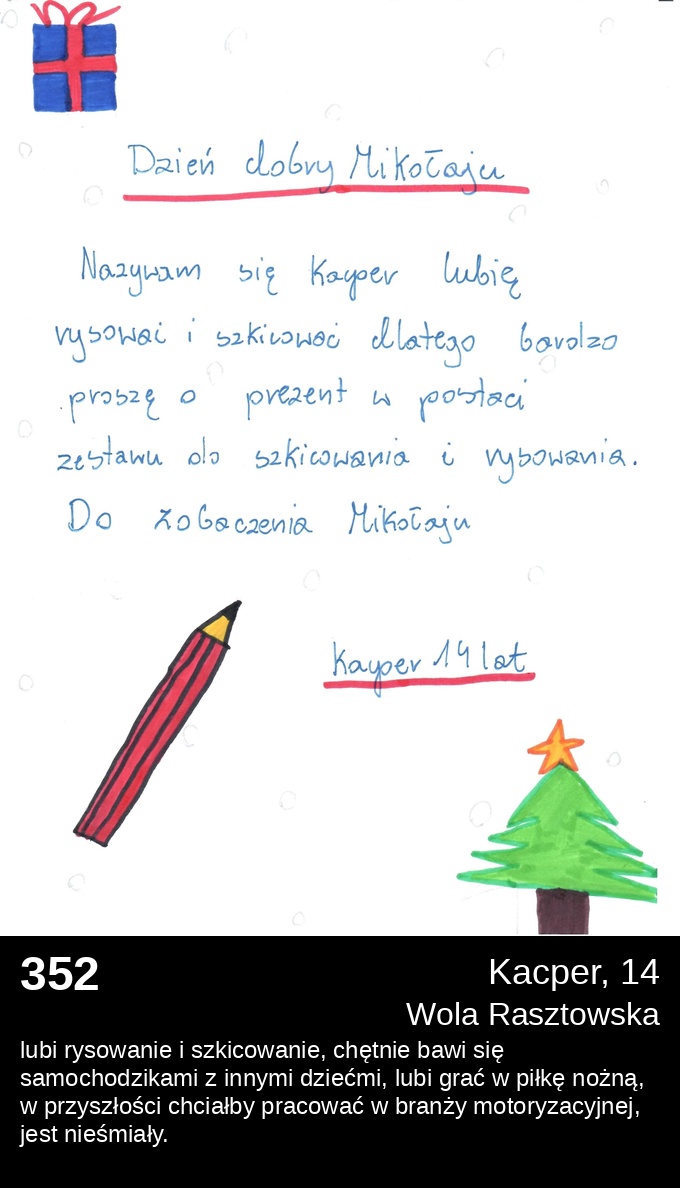 Dzień dobry Mikołaju
Nazywam się Kacper lubię
rysować i szkicować dlatego bardzo
proszę o prezent w postaci
zestawu do szkicowania i rysowania.
Do zobaczenia Mikołaju
Kacper 14 lat
352
Kacper, 14
Wola Rasztowska
lubi rysowanie i szkicowanie, chętnie bawi się
samochodzikami z innymi dziećmi, lubi grać w piłkę nożną,
w przyszłości chciałby pracować w branży motoryzacyjnej,
jest nieśmiały.